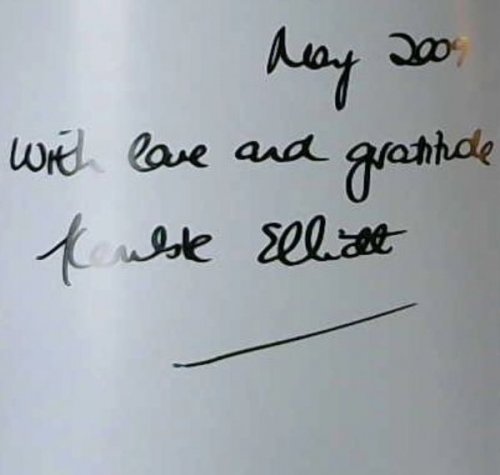 May 2009
With love and gratitude
Elliott